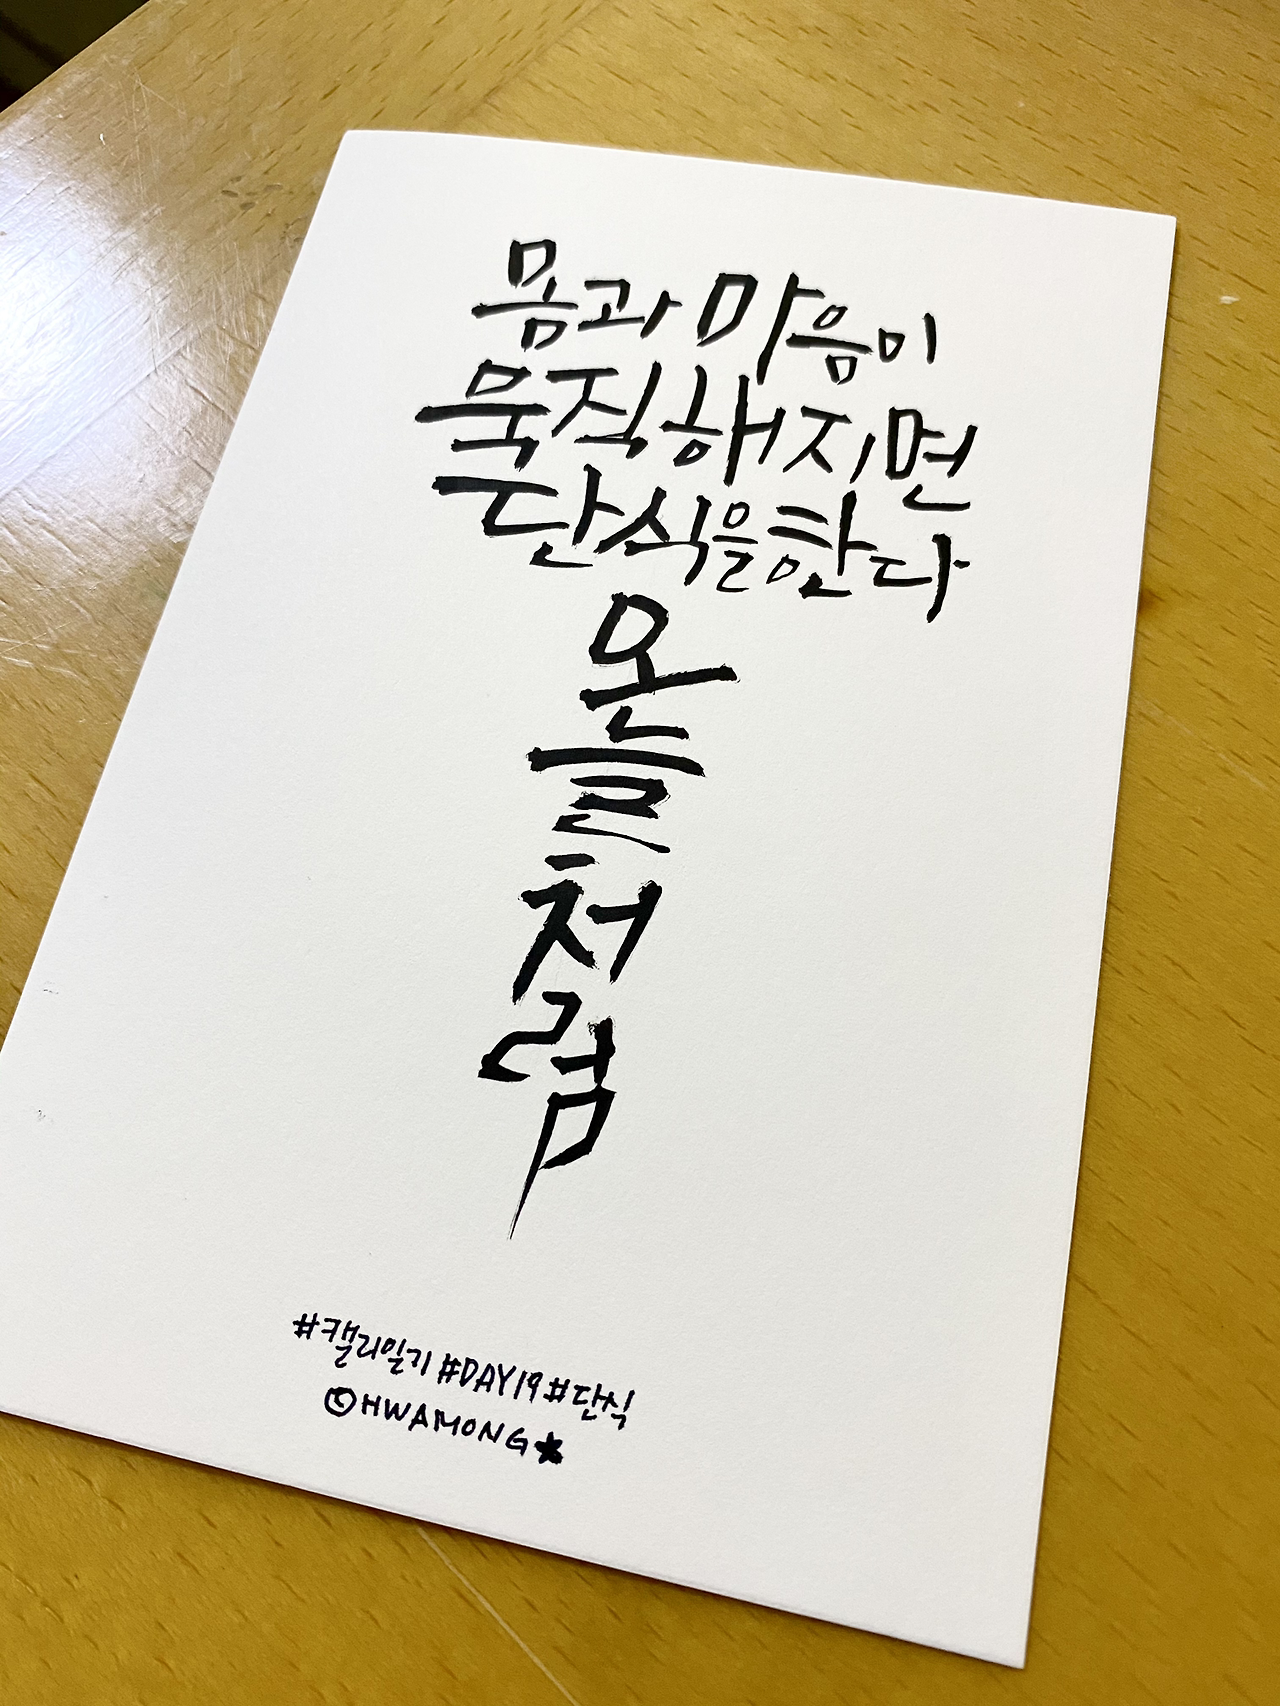 몸과 마음이
묵직해지면
단식을한다
오
늘
처
럼
#캘리일기 #DAY19 #단식
©HWAMONG★